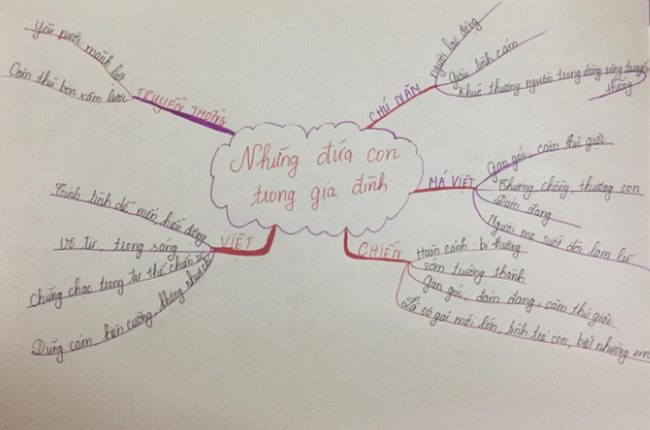 Những đứa con
trong gia đình
TRUYỀN THỐNG
Yêu nước mãnh liệt
Căm thù bọn xâm lược
CHÚ NĂM
Người lao động
Giàu tình cảm
Khúc thượng nguồn trong dòng sông truyền
thống
MÁ VIỆT
Gan góc, căm thù giặc
Thương chồng, thương con
Đảm đang
Người mẹ suốt đời lam lũ
CHIẾN
Hoàn cảnh bi thương
sớm trưởng thành
Gan góc, đảm đang, căm thù giặc
Là cô gái mới lớn, tính trẻ con, biết nhường em
VIỆT
Tính tình dễ mến, hiếu động
Vô tư trong sáng
Chững chạc trong tư thế chiến sĩ
Dũng cảm, kiên cường, không